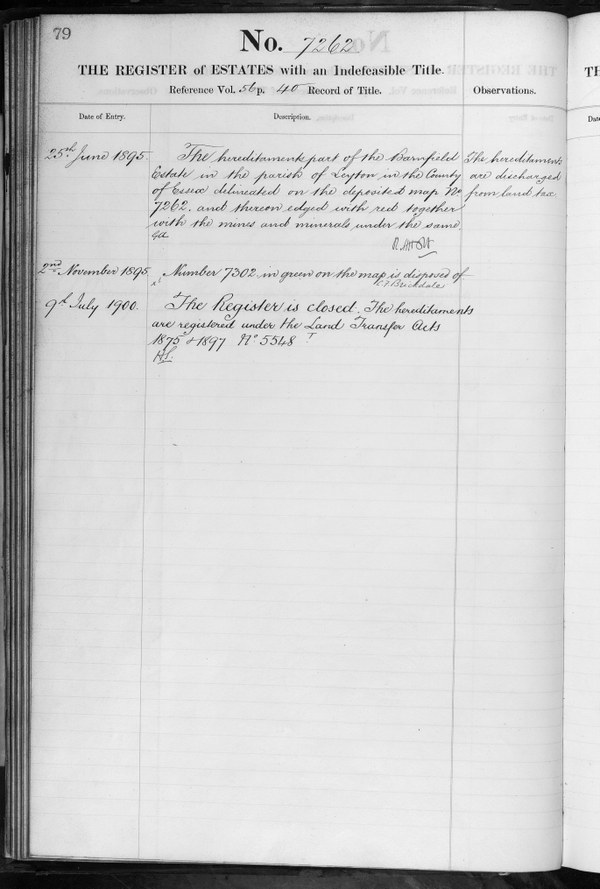 79
No. 7262
THE REGISTER of ESTATES with an Indefeasible Title.
Reference Vol. 56 p. 40 Record of Title.
Observations.
Date of Entry.
Description.
25th June 1895.
The hereditaments part of the Barnfield
Estate in the parish of Leyton in the County
of Essex delineated on the deposited map No
7262. and thereon edged with red together
with the mines and minerals under the same
The hereditaments
are discharged
from land tax
2nd November 1895.
Number 7302 in green on the map is disposed of
C F Brickdale
9th July 1900.
The Register is closed. The hereditaments
are registered under the Land Transfer Acts
1875 & 1897 No 5548
TH
Dat